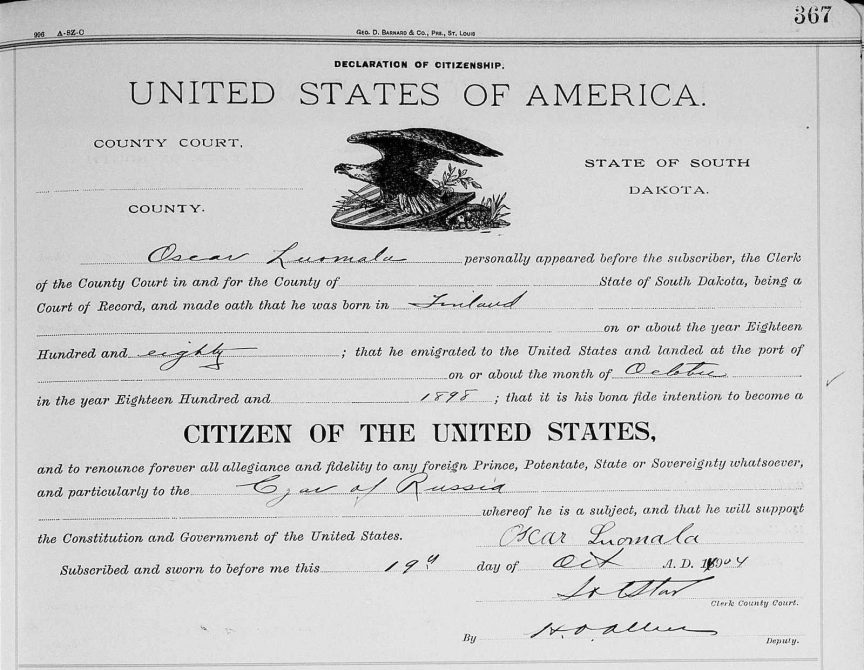 367
996 A-SZ-O
GEO. D. BARNARD & CO., PRS., ST. LOUIS
DECLARATION OF CITIZENSHIP.
UNITED STATES OF AMERICA.
COUNTY COURT,
COUNTY.
STATE OF SOUTH
DAKOTA.
Oscar Luomala personally appeared before the subscriber, the Clerk
of the County Court in and for the County of State of South Dakota, being a
Court of Record, and made oath that he was born in Finland
on or about the year Eighteen
Hundred and eighty ; that he emigrated to the United States and landed at the port of
on or about the month of October
in the year Eighteen Hundred and 1898 ; that it is his bona fide intention to become a
CITIZEN OF THE UNITED STATES,
and to renounce forever all allegiance and fidelity to any foreign Prince, Potentate, State or Sovereignty whatsoever,
and particularly to the Czar of Russia
whereof he is a subject, and that he will support
the Constitution and Government of the United States. Oscar Luomala
Subscribed and sworn to before me this 19th day of Oct A. D. 1904
Clerk County Court.
By H.O. Deputy.